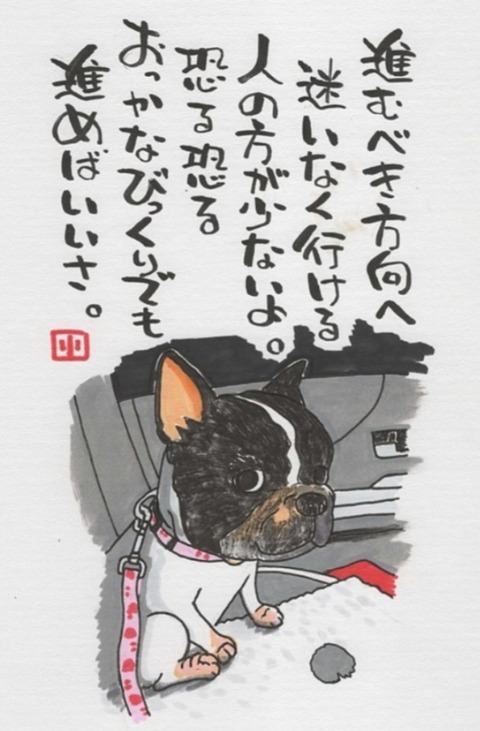 進むべき方向へ
迷いなく行ける
人の方が少ないよ。
恐る恐る
おっかなびっくりでも
進めばいいさ。